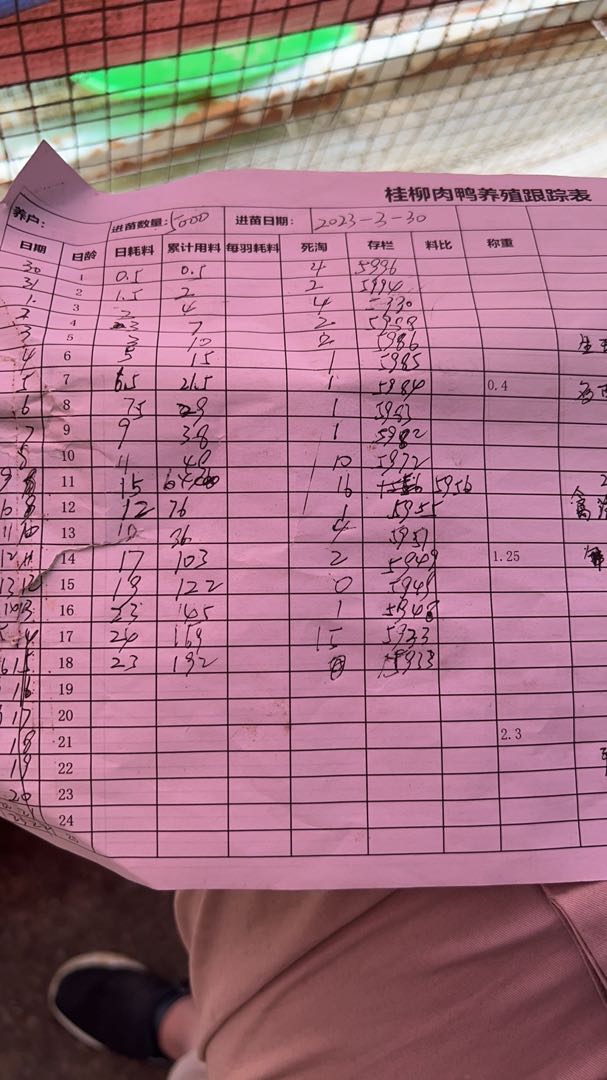 桂柳肉鸭养殖跟踪表
养户: 进苗数量: 5000 进苗日期: 2023-3-30
日期 日龄 日耗料 累计用料 每羽耗料 死淘 存栏 料比 称重
30 1 0.5 0.5 4 5996
31 2 1.5 2 2 5994
1 3 2 4 4
2 4 3 7 2 5988
3 5 3 10 2 5986
4 6 5 15 1 5985
5 7 6.5 21.5 1 5984 0.4
6 8 7.5 29 1 5983
7 9 9 38 1 5982
8 10 11 49 10 5972
9 11 15 64 16 5956
10 12 12 76 1 5955
11 13 10 36 4 5951
12 14 17 103 2 5949 1.25
13 15 19 122 0 5949
16 23 145 1 5948
17 24 169 15 5933
18 23 192 0 5933
16 19
17 20
18 21 2.3
19 22
20 23
24